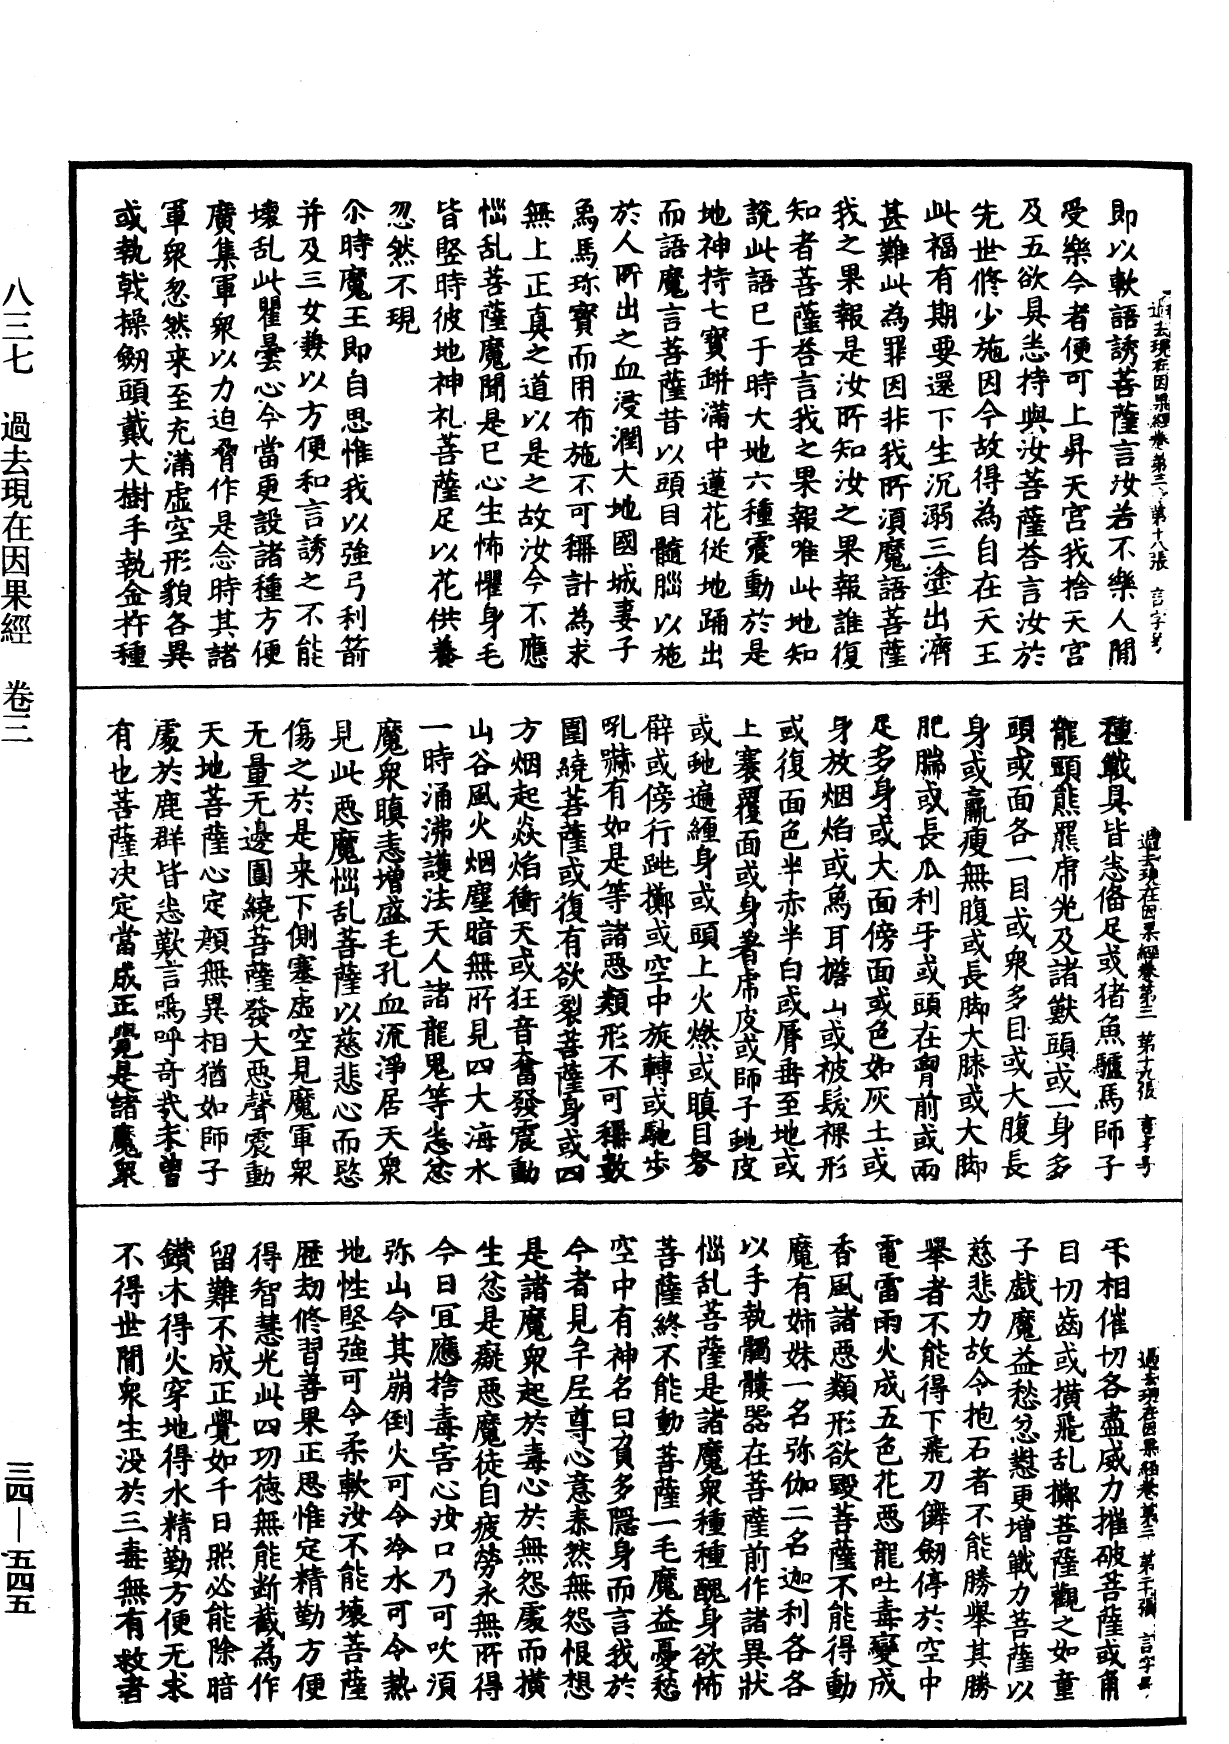 過去現在因果經卷第三 第十八張 言字号
即以軟語誘菩薩言汝若不樂人間
受樂今者便可上昇天宮我捨天宮
及五欲具悉持與汝菩薩荅言汝於
先世修少施因今故得為自在天王
此福有期要還下生沉溺三塗出濟
甚難此為罪因非我所湏魔語菩薩
我之果報是汝所知汝之果報誰復
知者菩薩荅言我之果報唯此地知
說此語已于時大地六種震動於是
地神持七寶缾滿中蓮花従地踊出
而語魔言菩薩昔以頭目髓腦以施
於人所出之血浸潤大地國城妻子
鳥馬珎寶而用布施不可稱計為求
無上正真之道以是之故汝今不應
惱乱菩薩魔聞是已心生怖懼身毛
皆竪時彼地神礼菩薩足以花供養
忽然不現
尒時魔王即自思惟我以強弓利箭
并及三女兼以方便和言誘之不能
壊乱此瞿曇心今當更設諸種方便
廣集軍衆以力迫脅作是念時其諸
軍衆忽然来至充滿虚空形貌各異
或執戟操劒頭戴大樹手執金杵種
過去現在因果經卷第三 第十九張 言字号
種戰具皆悉俻足或猪魚驢馬師子
龍頭熊羆虎兕及諸獸頭或一身多
頭或面各一目或衆多目或大腹長
身或羸瘦無腹或長脚大膝或大脚
肥腨或長爪利牙或頭在胷前或兩
足多身或大面傍面或色如灰土或
身放烟焰或鳥耳擔山或被髮裸形
或復面色半赤半白或脣垂至地或
上褰覆面或身著虎皮或師子虵皮
或虵遍纏身或頭上火燃或瞋目努
臂或傍行跳擲或空中旋轉或馳步
吼嚇有如是等諸惡類形不可稱數
圍繞菩薩或復有欲裂菩薩身或四
方烟起焱焰衝天或狂音奮發震動
山谷風火烟塵暗無所見四大海水
一時涌沸護法天人諸龍鬼等悉忿
魔衆瞋恚增盛毛孔血流淨居天衆
見此惡魔惱乱菩薩以慈悲心而愍
傷之於是来下側塞虚空見魔軍衆
无量无邊圍繞菩薩發大惡聲震動
天地菩薩心定顏無異相猶如師子
處於鹿群皆悉歎言嗚呼奇哉未曾
有也菩薩决定當成正覺是諸魔衆
過去現在因果經卷第三 第二十張 言字号
㸦相催切各盡威力摧破菩薩或角
目切齒或横飛乱擲菩薩觀之如童
子戲魔益愁忿懟更增戰力菩薩以
慈悲力故令抱石者不能勝舉其勝
舉者不能得下飛刀儛劒停於空中
電雷雨火成五色花惡龍吐毒變成
香風諸惡類形欲毀菩薩不能得動
魔有姊妹一名弥伽二名迦利各各
以手執髑髏器在菩薩前作諸異狀
惱乱菩薩是諸魔衆種種醜身欲怖
菩薩終不能動菩薩一毛魔益憂愁
空中有神名曰負多隱身而言我於
今者見牟尼尊心意泰然無怨恨想
是諸魔衆起於毒心於無怨處而横
生忿是癡惡魔徒自疲勞永無所得
今日冝應捨毒害心汝口乃可吹湏
弥山令其崩倒火可令冷水可令熱
地性堅強可令柔軟汝不能壊菩薩
歴劫修習善果正思惟定精勤方便
得智慧光此四功徳無能断截為作
留難不成正覺如千日照必能除暗
鑚木得火穿地得水精勤方便无求
不得世間衆生没於三毒無有救者
八三七 過去現在因果經 卷三
三四—五四五